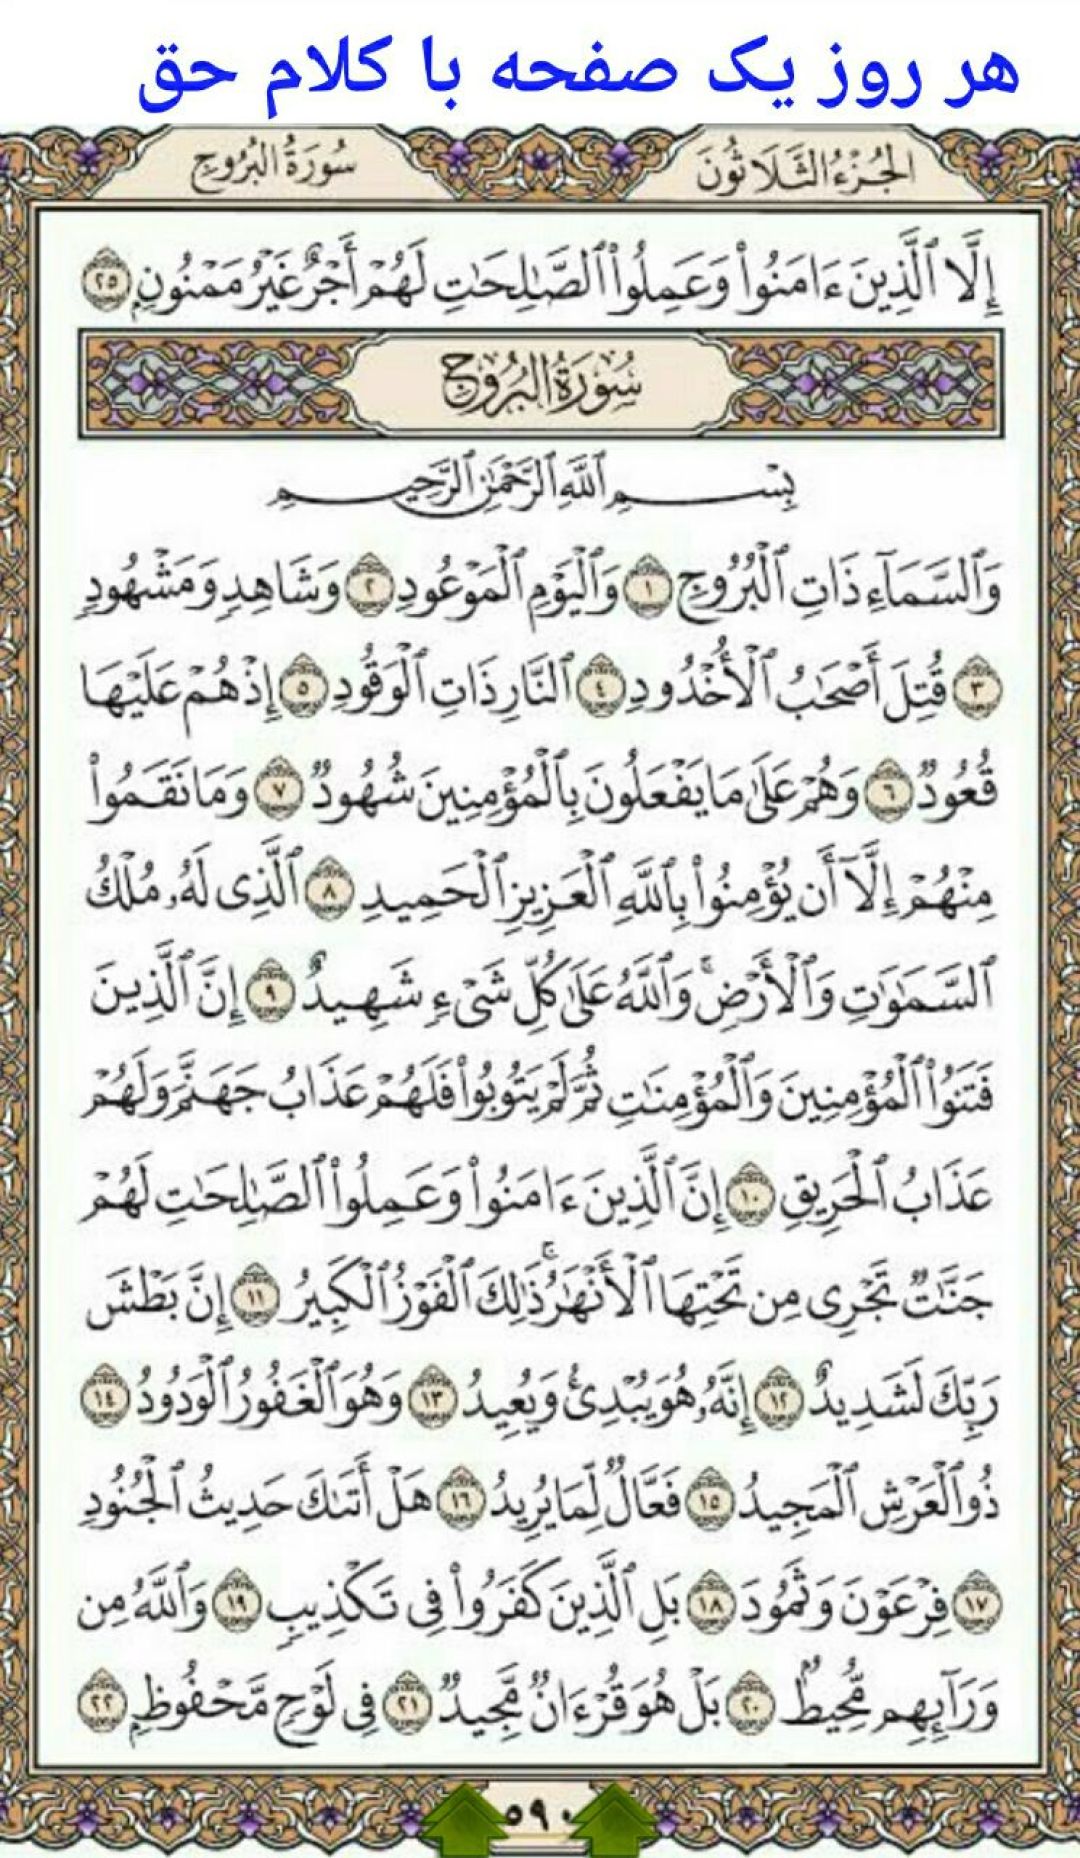 هر روز یک صفحه با کلام حق
الجُزْءُ الثَّلَاثُونَ
سُورَةُ البُرُوجِ
إِلَّا ٱلَّذِينَ ءَامَنُوا۟ وَعَمِلُوا۟ ٱلصَّٰلِحَٰتِ لَهُمْ أَجْرٌ غَيْرُ مَمْنُونٍۭ ٢٥
سُورَةُ البُرُوجِ
بِسْمِ ٱللَّهِ ٱلرَّحْمَٰنِ ٱلرَّحِيمِ
وَٱلسَّمَآءِ ذَاتِ ٱلْبُرُوجِ ١ وَٱلْيَوْمِ ٱلْمَوْعُودِ ٢ وَشَاهِدٍ وَمَشْهُودٍ
٣ قُتِلَ أَصْحَٰبُ ٱلْأُخْدُودِ ٤ ٱلنَّارِ ذَاتِ ٱلْوَقُودِ ٥ إِذْ هُمْ عَلَيْهَا
قُعُودٌ ٦ وَهُمْ عَلَىٰ مَا يَفْعَلُونَ بِٱلْمُؤْمِنِينَ شُهُودٌ ٧ وَمَا نَقَمُوا۟
مِنْهُمْ إِلَّآ أَن يُؤْمِنُوا۟ بِٱللَّهِ ٱلْعَزِيزِ ٱلْحَمِيدِ ٨ ٱلَّذِى لَهُۥ مُلْكُ
ٱلسَّمَٰوَٰتِ وَٱلْأَرْضِ ۚ وَٱللَّهُ عَلَىٰ كُلِّ شَىْءٍ شَهِيدٌ ٩ إِنَّ ٱلَّذِينَ
فَتَنُوا۟ ٱلْمُؤْمِنِينَ وَٱلْمُؤْمِنَٰتِ ثُمَّ لَمْ يَتُوبُوا۟ فَلَهُمْ عَذَابُ جَهَنَّمَ وَلَهُمْ
عَذَابُ ٱلْحَرِيقِ ١٠ إِنَّ ٱلَّذِينَ ءَامَنُوا۟ وَعَمِلُوا۟ ٱلصَّٰلِحَٰتِ لَهُمْ
جَنَّٰتٌ تَجْرِى مِن تَحْتِهَا ٱلْأَنْهَٰرُ ۚ ذَٰلِكَ ٱلْفَوْزُ ٱلْكَبِيرُ ١١ إِنَّ بَطْشَ
رَبِّكَ لَشَدِيدٌ ١٢ إِنَّهُۥ هُوَ يُبْدِئُ وَيُعِيدُ ١٣ وَهُوَ ٱلْغَفُورُ ٱلْوَدُودُ ١٤
ذُو ٱلْعَرْشِ ٱلْمَجِيدُ ١٥ فَعَّالٌ لِّمَا يُرِيدُ ١٦ هَلْ أَتَىٰكَ حَدِيثُ ٱلْجُنُودِ
١٧ فِرْعَوْنَ وَثَمُودَ ١٨ بَلِ ٱلَّذِينَ كَفَرُوا۟ فِى تَكْذِيبٍ ١٩ وَٱللَّهُ مِن
وَرَآئِهِم مُّحِيطٌۢ ٢٠ بَلْ هُوَ قُرْءَانٌ مَّجِيدٌ ٢١ فِى لَوْحٍ مَّحْفُوظٍۭ ٢٢
٥٩٠